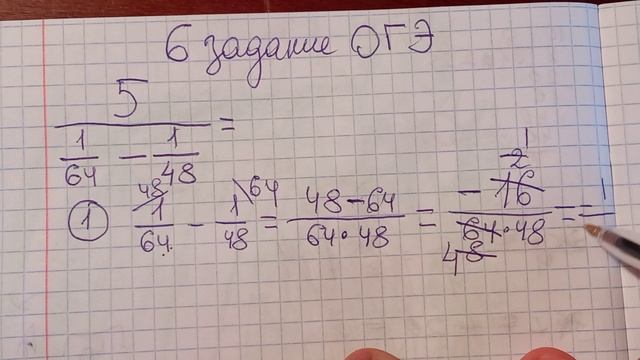 6 задание ОГЭ
5 / (1/64 - 1/48) =
① 1/64 (48) - 1/48 (64) = (48-64)/(64·48) = - 16 2 1 / 64 8 4 · 48 = = 1